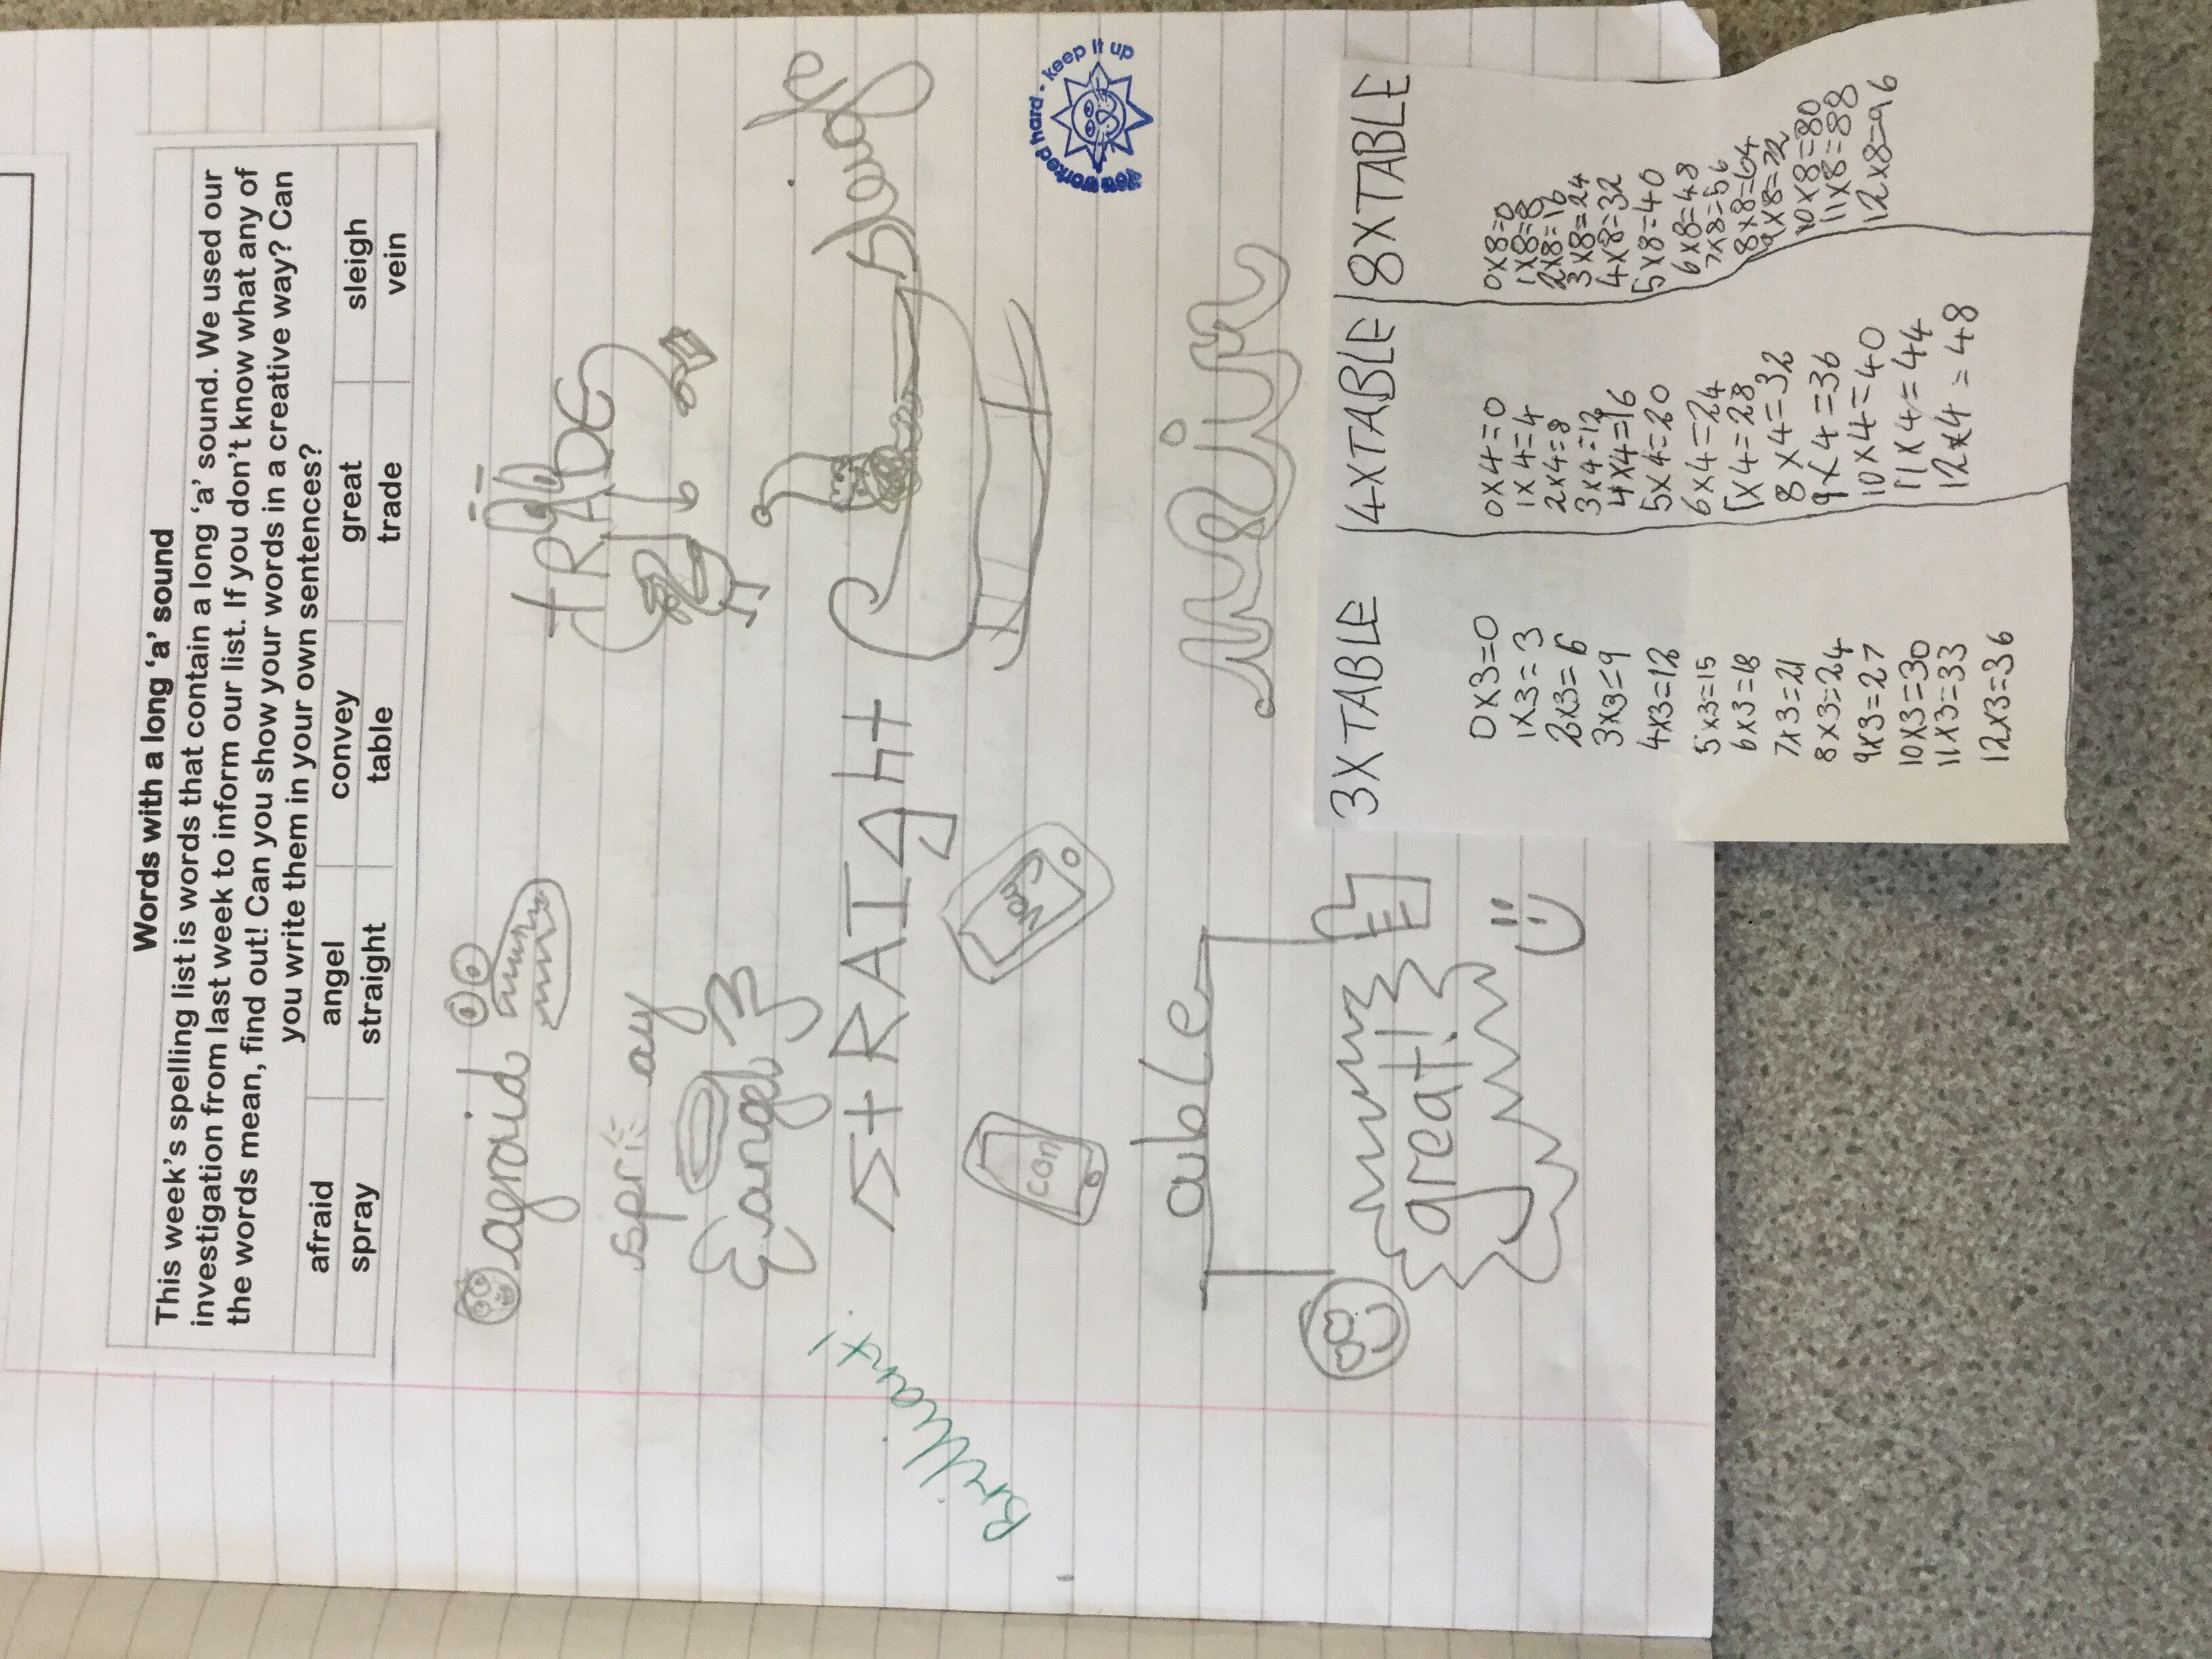 Words with a long ‘a’ sound
This week’s spelling list is words that contain a long ‘a’ sound. We used our
investigation from last week to inform our list. If you don’t know what any of
the words mean, find out! Can you show your words in a creative way? Can
you write them in your own sentences?
afraid angel convey great sleigh
spray straight table trade vein
afraid
tRADE
spray
angel
StRAIght
sleigh
con
vey
table
vein
great!
Brilliant!
You worked hard - keep it up
3XTABLE
0x3=0
1x3=3
2x3=6
3x3=9
4x3=12
5x3=15
6x3=18
7x3=21
8x3=24
9x3=27
10x3=30
11x3=33
12x3=36
4XTABLE
0x4=0
1x4=4
2x4=8
3x4=12
4x4=16
5x4=20
6x4=24
7x4=28
8x4=32
9x4=36
10x4=40
11x4=44
12x4=48
8XTABLE
0x8=0
1x8=8
2x8=16
3x8=24
4x8=32
5x8=40
6x8=48
7x8=56
8x8=64
9x8=72
10x8=80
11x8=88
12x8=96